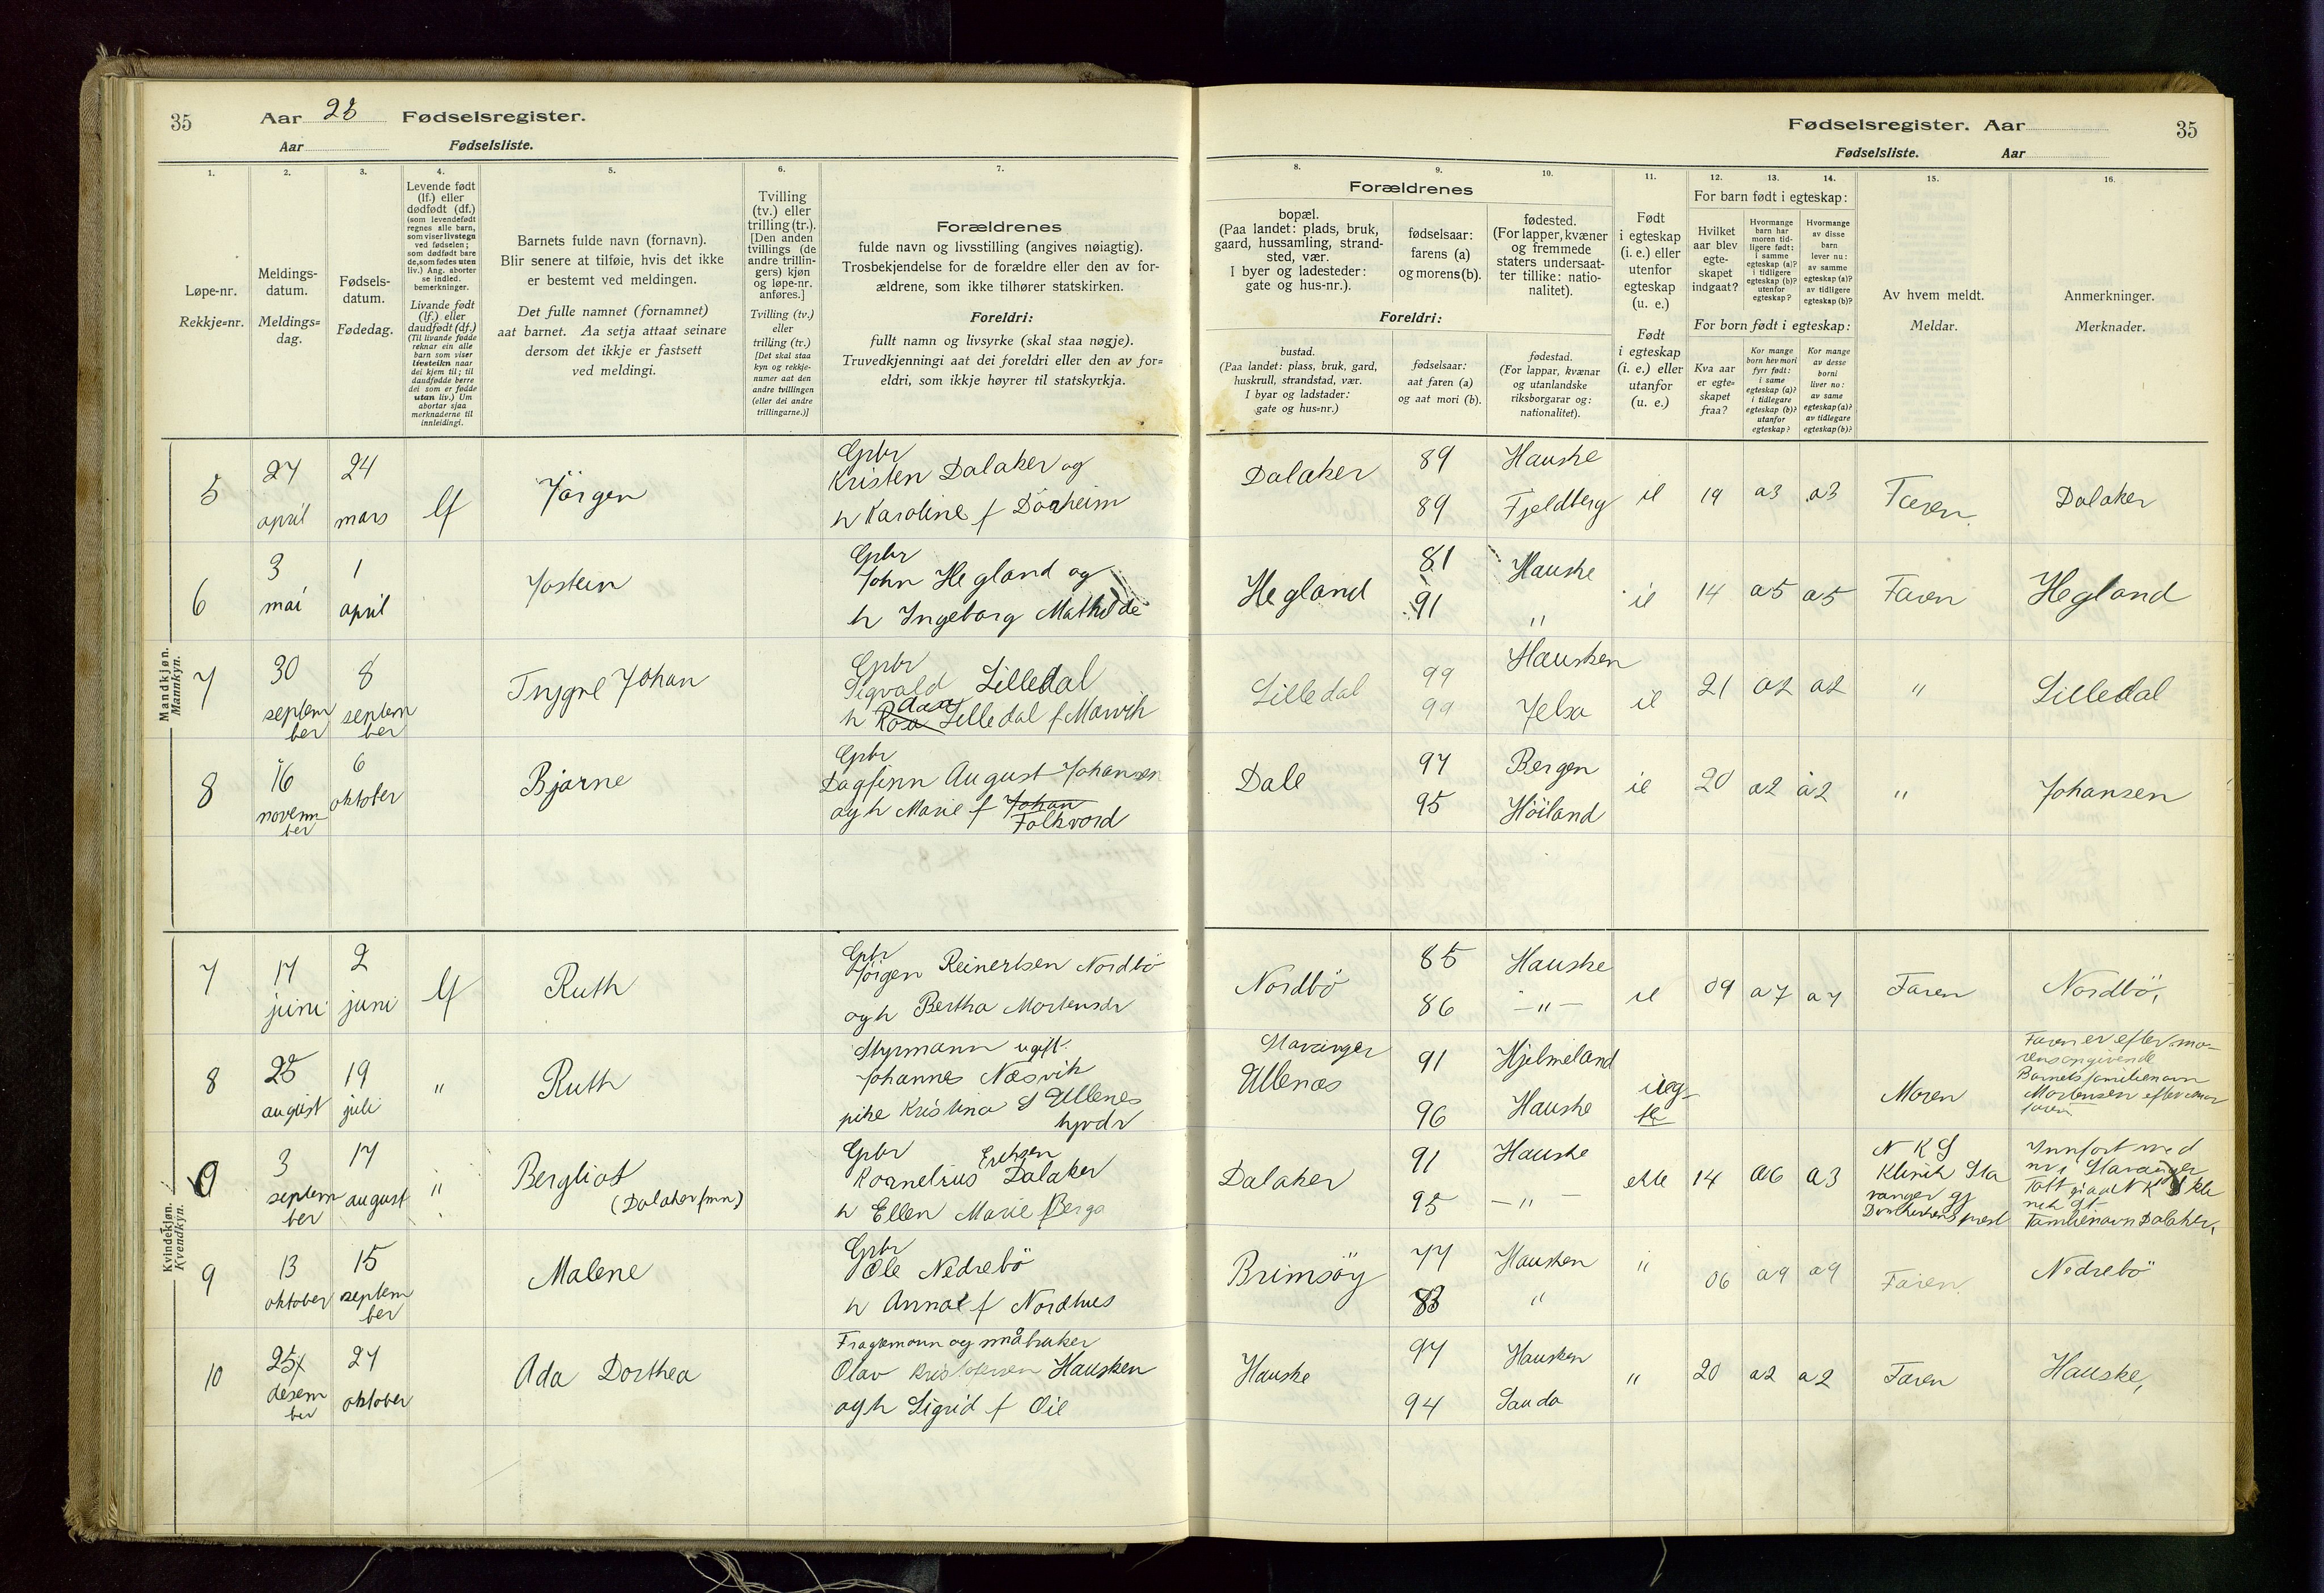 35 Aar 28 Fødselsregister.
Aar Fødselsliste.
1. 2. 3. 4. 5. 6. 7.
Løpe-nr.
Rekkje=nr.
Meldings-
datum.
Meldings=
dag.
Fødsels-
datum.
Fødedag.
Levende født
(lf.) eller
dødfødt (df.)
(som levendefødt
regnes alle barn,
som viser livstegn
ved fødselen;
som dødfødt bare
de, som fødes uten
liv.) Ang. aborter
se indled.
bemerkninger.
Livande født
(lf.) eller
daudfødt (df.)
(Til livande fødde
reknar ein alle
barn som viser
livsteikn naar
dei kjem til; til
daudfødde berre
dei som er fødde
utan liv.) Um
abortar sjaa
merknaderne til
innleidingi.
Barnets fulde navn (fornavn).
Blir senere at tilføie, hvis det ikke
er bestemt ved meldingen.
Det fulle namnet (fornamnet)
aat barnet. Aa setja attaat seinare
dersom det ikkje er fastsett
ved meldingi.
Tvilling
(tv.) eller
trilling (tr.).
[Den anden
tvillings (de
andre trillin-
gers) kjøn
og løpe-nr.
anføres.]
Tvilling (tv.)
eller
trilling (tr.)
[Det skal staa
kyn og rekkje-
numer aat den
andre tvillingen
(eller dei andre
trillingarne.)]
Forældrenes
fulde navn og livsstilling (angives nøiagtig).
Trosbekjendelse for de forældre eller den av for-
ældrene, som ikke tilhører statskirken.
Foreldri:
fullt namn og livsyrke (skal staa nøgje).
Truvedkjenningi aat dei foreldri eller den av for=
eldri, som ikkje høyrer til statskyrkja.
Mandkjøn.
Mannkyn.
5 27 april 24 mars lf Jörgen
Gpbr
Kristen Dalaker og
h Karoline f Döaheim
6 3 mai 1 april Jostein
Gpbr
John Hegland og
h Ingeborg Mathilde
7 30 septem
ber 8 septem
ber Trygve Johan
Gpbr
Sigvald Lilledal
h Rosa Lilledal f Marvik
8 16 novem
ber 6 oktober Bjarne
Gpbr
Dagfinn August Johansen
og h Marie f Johan
Folkvord
Kvindekjøn.
Kvendkyn.
7 17 juni 2 juni lf Ruth
Gpbr
Jörgen Reinertsen Nordbö
og h Bertha Mortensdr
8 25 august 19 juli " Ruth
Styrmann ugift.
Johannes Næsvik
pike Kristina Ullenes
9 3 septem
ber 17 august " Bergliot
(Dalaker fmn)
Gpbr
Kornelius Dalaker
h Ellen Marie f Berge
9 13 oktober 15 septem
ber Malene
Gpbr
Ole Nedrebö
h Anna f Nordhus
10 25 desem
ber 27 oktober Ada Dorthea
Fragtemann og småbruker
Olav Kristofersen Hausken
og h Sigrid f Öie
Fødselsregister. Aar 35
Fødselsliste. Aar
8. 9. 10. 11. 12. 13. 14. 15. 16.
Forældrenes
bopæl.
(Paa landet: plads, bruk,
gaard, hussamling, strand-
sted, vær.
I byer og ladesteder:
gate og hus-nr.).
fødselsaar:
farens (a)
og morens (b).
fødested.
(For lapper, kvæner
og fremmede
staters undersaat-
ter tillike: natio-
nalitet).
Foreldri:
bustad.
(Paa landet: plass, bruk, gard,
huskrull, strandstad, vær.
I byar og ladstader:
gate og hus=nr.)
fødselsaar:
aat faren (a)
og aat mori (b).
fødestad.
(For lappar, kvænar
og utanlandske
riksborgarar og:
nationalitet).
Født
i egteskap
(i. e.) eller
utenfor
egteskap
(u. e.)
Født
i egteskap
(i. e.) eller
utanfor
(u. e.)
For barn født i egteskap:
Hvilket
aar blev
egte-
skapet
indgaat?
Hvormange
barn har
moren tid-
ligere født:
i samme
egteskap (a)?
i tidligere
egteskap (b)?
utenfor
egteskap?
Hvormange
av disse
barn
lever nu:
av samme
egteskap (a)?
av tidligere
egteskap (b)?
For born født i egteskap:
Kva aar
er egte=
skapet
fraa?
Kor mange
born hev mori
fyrr født:
i same
egteskap (a)?
i tidlegare
egteskap (b)?
utanfor
egteskap?
Kor mange
av desse
borni
liver no:
av same
egteskap (a)?
av tidlegare
egteskap (b)?
Av hvem meldt.
Meldar.
Anmerkninger.
Merknader.
Dalaker 89 Hauske
89 Fjeldberg ie 19 a3 a3 Faren Dalaker
Hegland 81 Hauske
91 " ie 14 a5 a5 Faren Hegland
Lilledal 99 Hausken
99 Jelsa ie 21 a2 a2 " Lilledal
Dale 97 Bergen
95 Höiland ie 20 a2 a2 " Johansen
Nordbö 85 Hauske
86 —"— ie 09 a7 a7 Faren Nordbö,
Stavanger 91 Hjelmeland
Ullenæs 96 Hauske Moren
Faren er efter mo-
rens angivende
Barnets familienavn
Mortensen efter mor
faren
Dalaker 91 Hauske
95 —"— 14 a6 a3
N K S
Klinik Sta
vanger
Innfört med
nr Stavanger
Familienavn Dalaker,
Brimsöy 77 Hausken
83 " " 06 a9 a9 Faren Nedrebö
Hauske 97 Hausken
94 Sauda " 20 a2 a2 Faren Hauske,